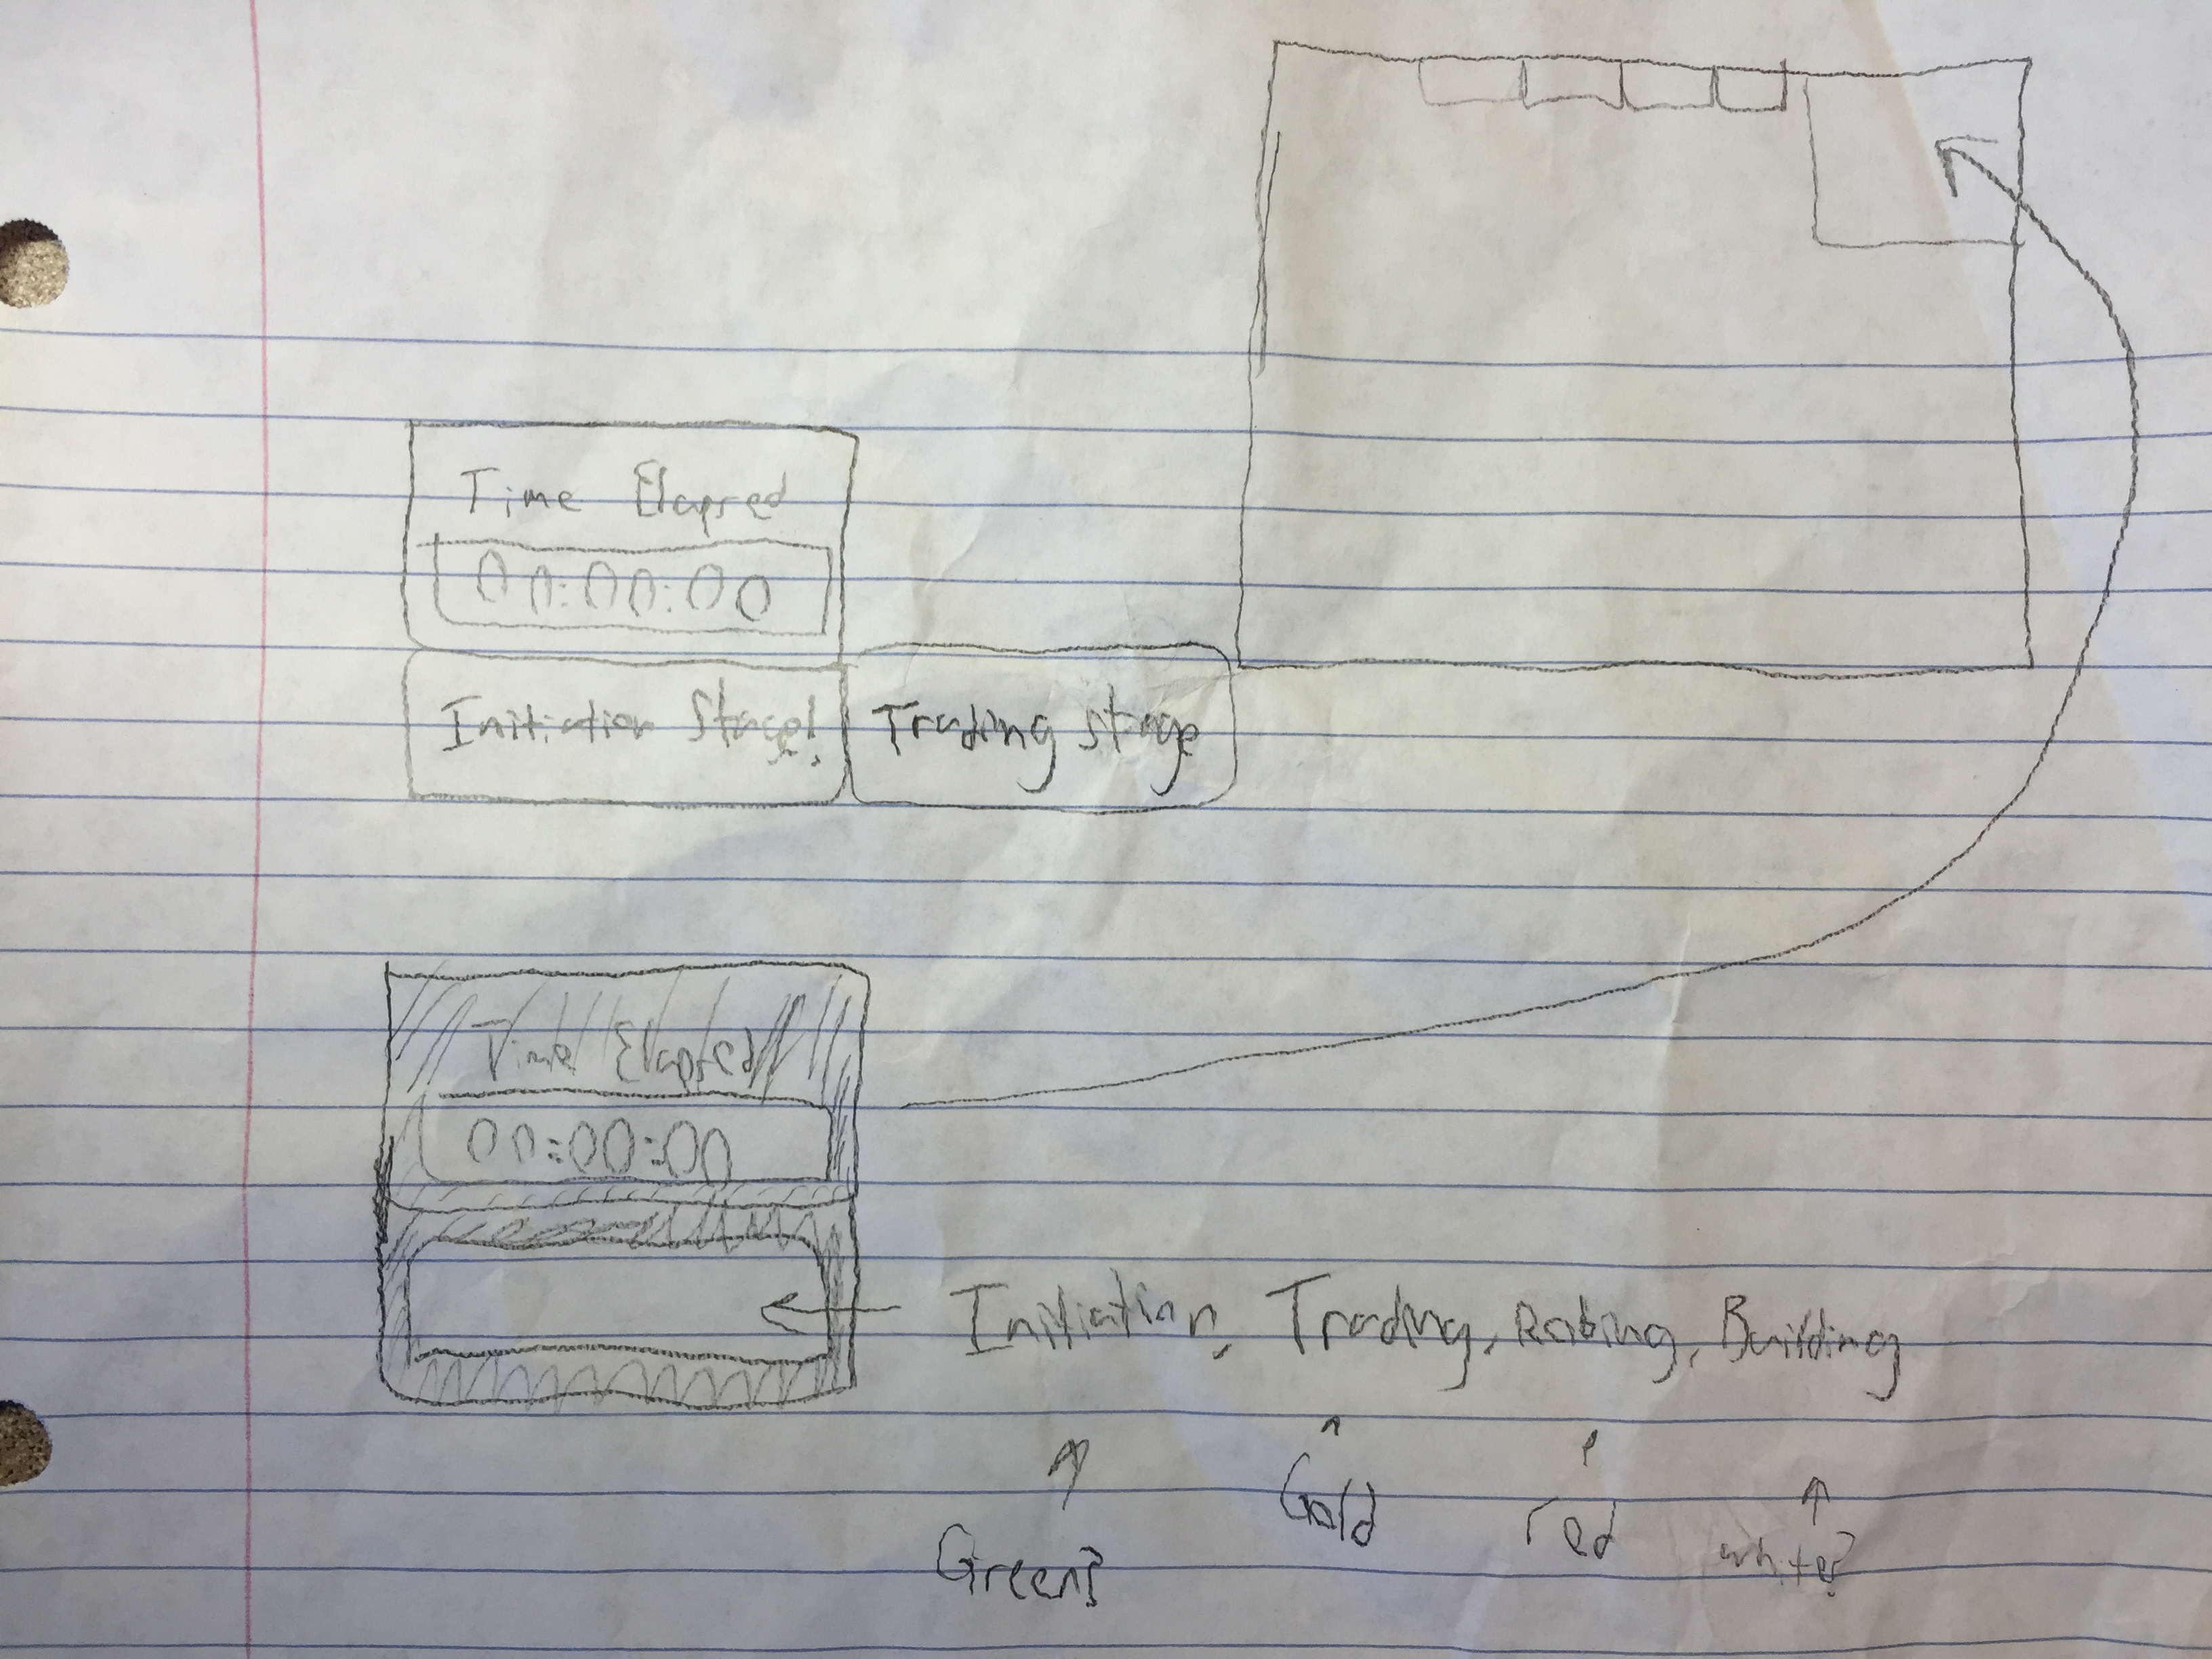 Time Elapsed
00:00:00
Initiation Stage!
Trading Stage
Time Elapsed
00:00:00
Initiation, Trading, Rating, Building
Green?
Gold
red
white?